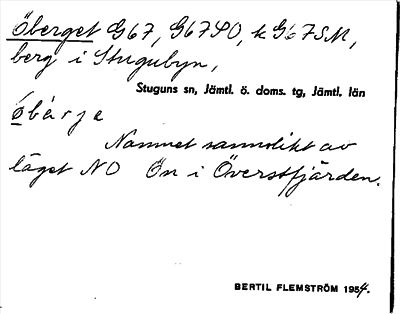 Öberget G67, G67SO, k G67SM,
berg i Stugubyn,
Stuguns sn, Jämtl. ö. doms. tg, Jämtl. län
øbárje
Namnet sannolikt av
läget NO Ön i Överstfjärden.
BERTIL FLEMSTRÖM 1954.